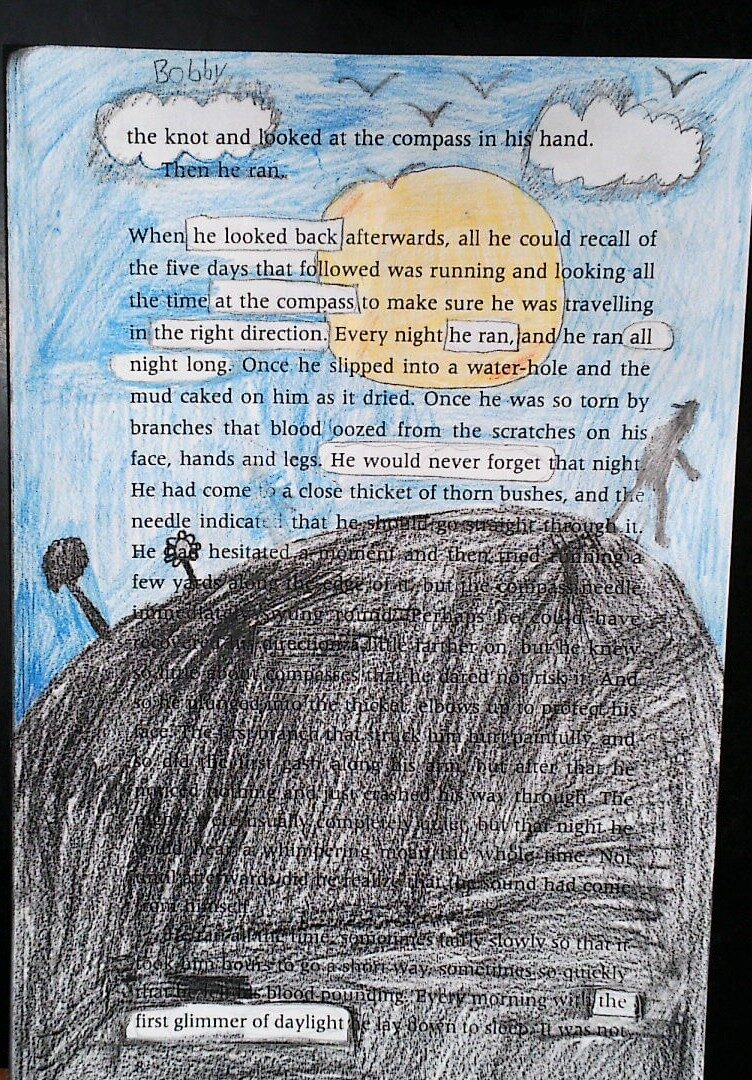 Bobby
the knot and looked at the compass in his hand.
Then he ran.
When he looked back afterwards, all he could recall of
the five days that followed was running and looking all
the time at the compass to make sure he was travelling
in the right direction. Every night he ran, and he ran all
night long. Once he slipped into a water-hole and the
mud caked on him as it dried. Once he was so torn by
branches that blood oozed from the scratches on his
face, hands and legs. He would never forget that night.
He had come to a close thicket of thorn bushes, and the
needle indicated that he should go straight through it.
He had hesitated a moment and then tried running a
few yards along the edge of it, but the compass needle
immediately swung round. Perhaps he could have
recovered his direction a little farther on, but he knew
so little about compasses that he dared not risk it. And
so he plunged into the thicket, elbows up to protect his
face. The first branch that struck him hurt painfully, and
so did the first gash along his arm, but after that he
noticed nothing and just crashed his way through. The
nights were usually completely quiet, but that night he
could hear a whimpering moan the whole time. Not
until afterwards did he realize that the sound had come
from himself.
He ran all the time, sometimes fairly slowly so that it
took him hours to go a short way, sometimes so quickly
that his blood pounding. Every morning with the
first glimmer of daylight he lay down to sleep. It was not